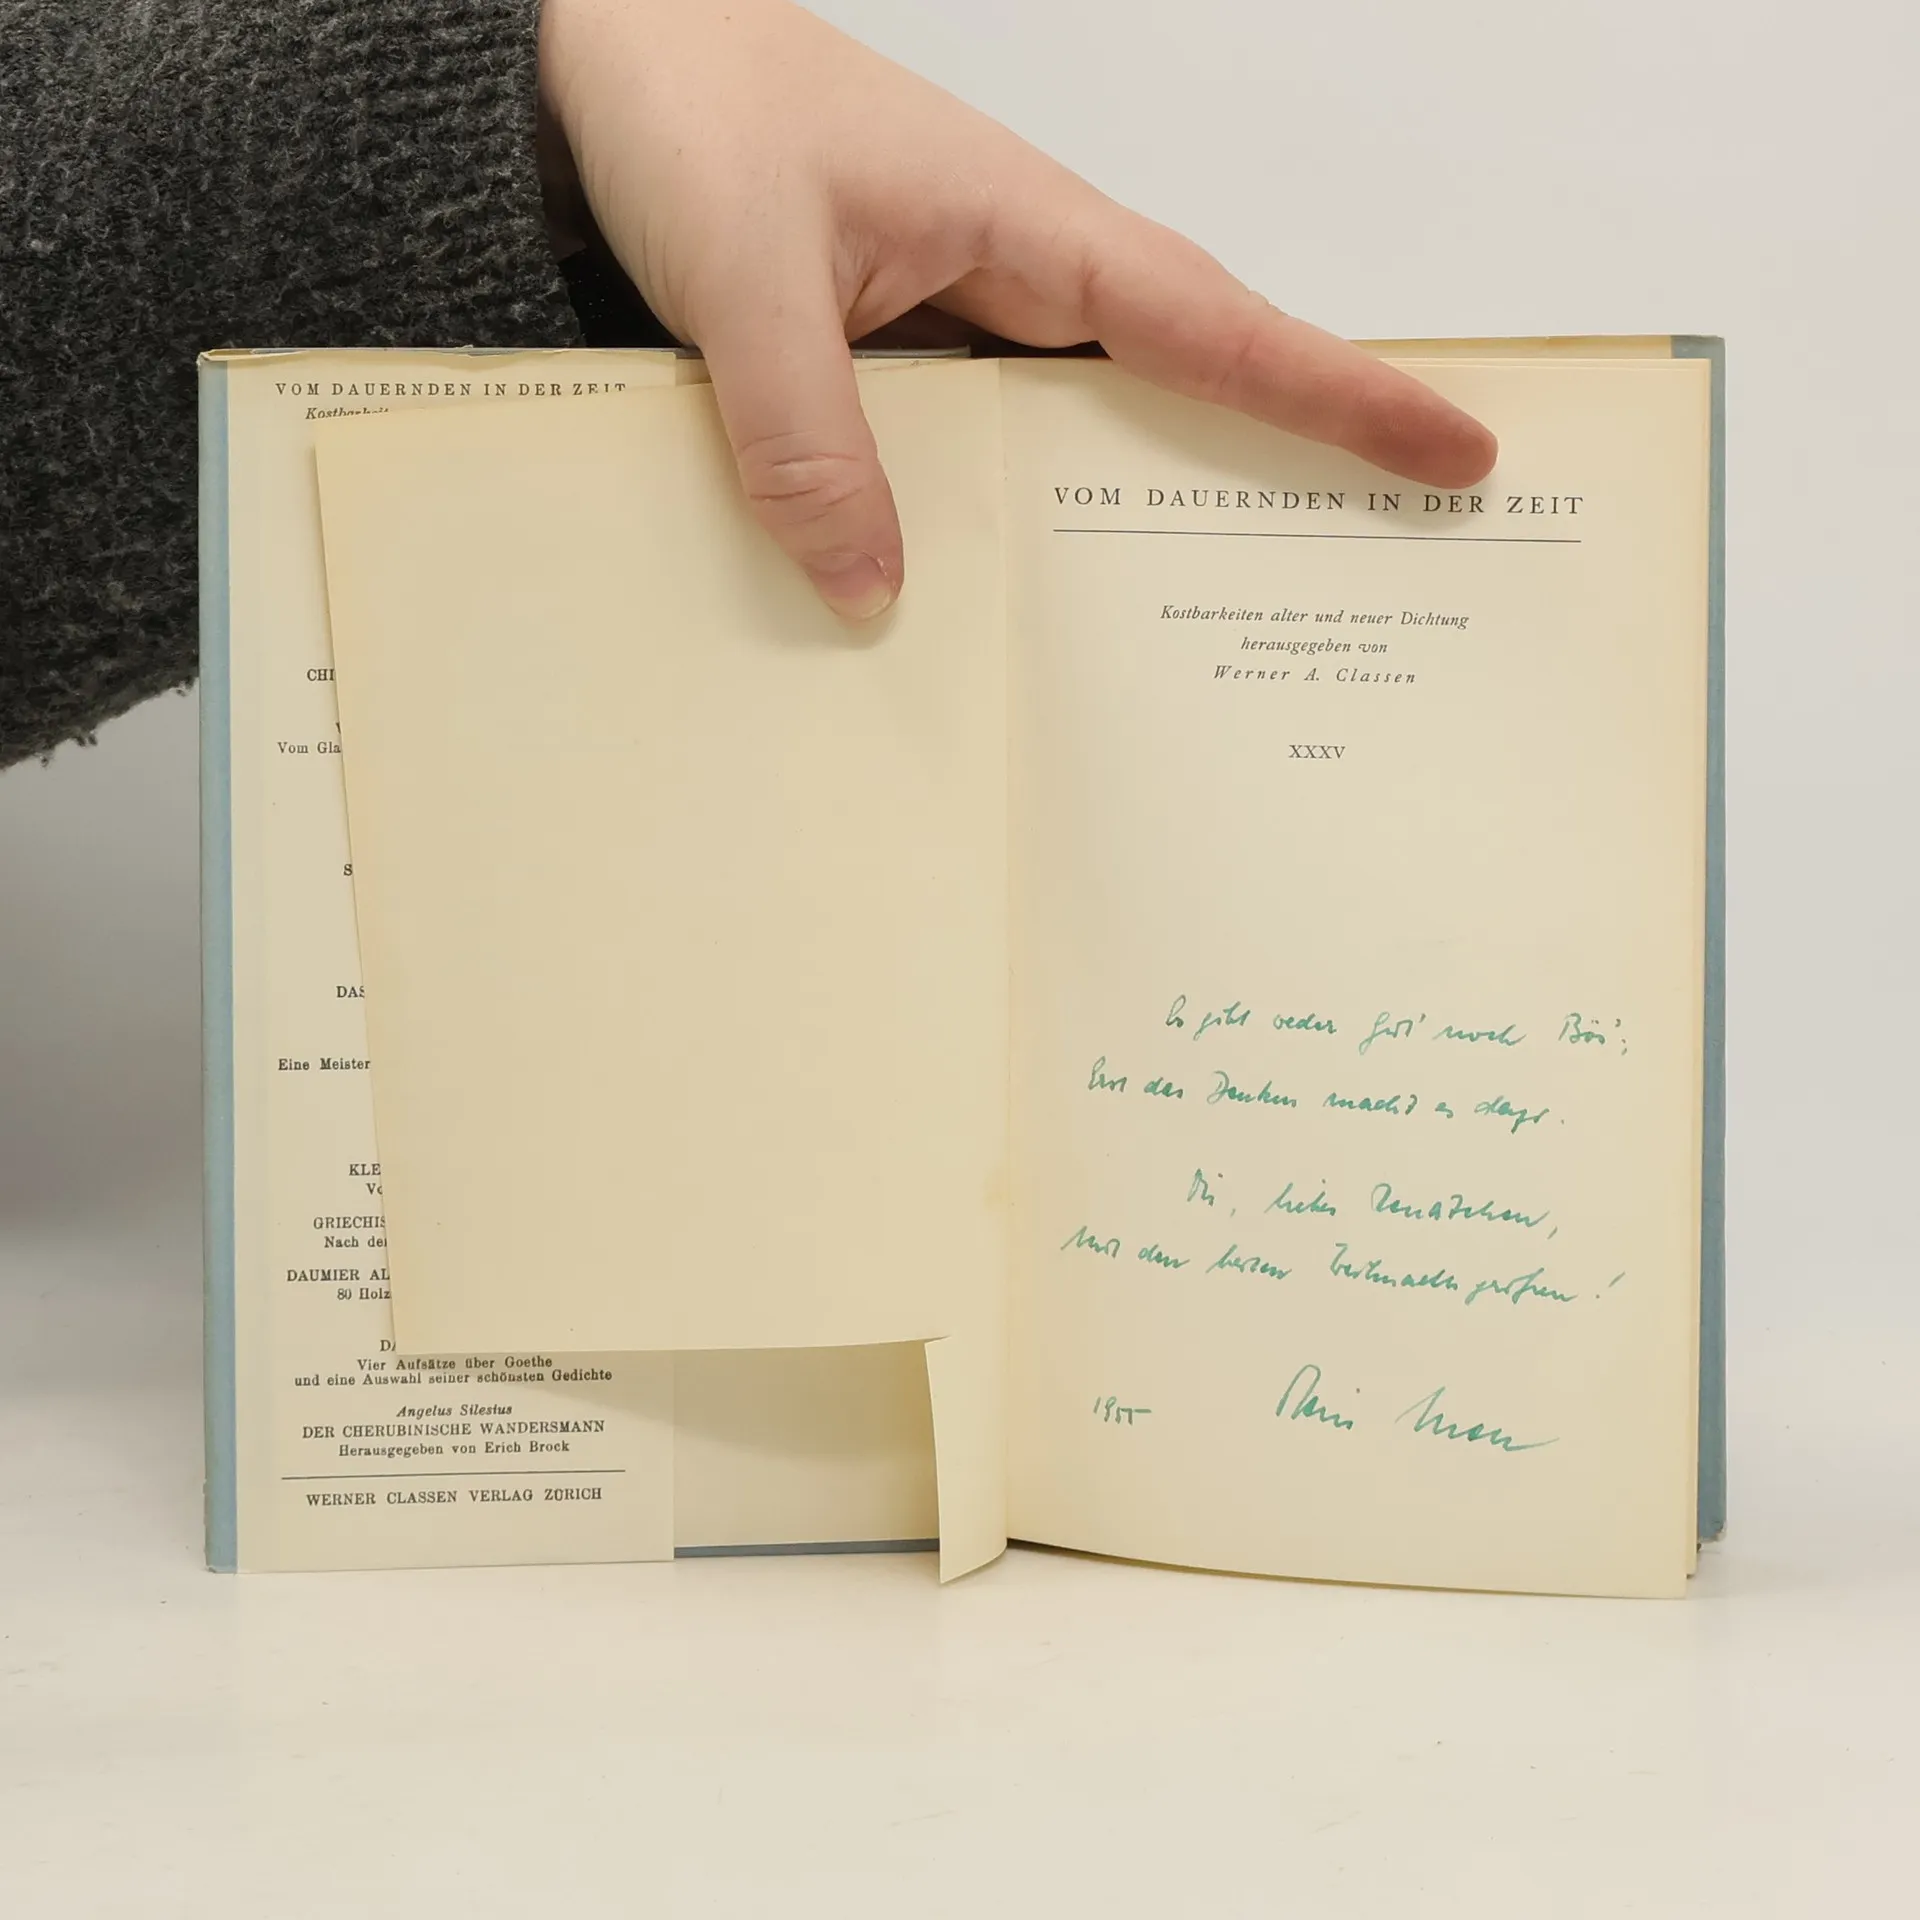 VOM DAUERNDEN IN DER ZEIT
CHI
Vom Gla
S
DAS
Eine Meister
KLE
Vo
GRIECHIS
Nach de
DAUMIER AL
80 Holz
DA
Vier Aufsätze über Goethe
und eine Auswahl seiner schönsten Gedichte
Angelus Silesius
DER CHERUBINISCHE WANDERSMANN
Herausgegeben von Erich Brock
WERNER CLASSEN VERLAG ZÜRICH
VOM DAUERNDEN IN DER ZEIT
Kostbarkeiten alter und neuer Dichtung
herausgegeben von
Werner A. Classen
XXXV
Es gibt weder Gut' noch Bös';
Erst das Denken macht es dazu.
Dir, liebes Renatchen,
mit den besten Weihnachtsgrüßen!
1955